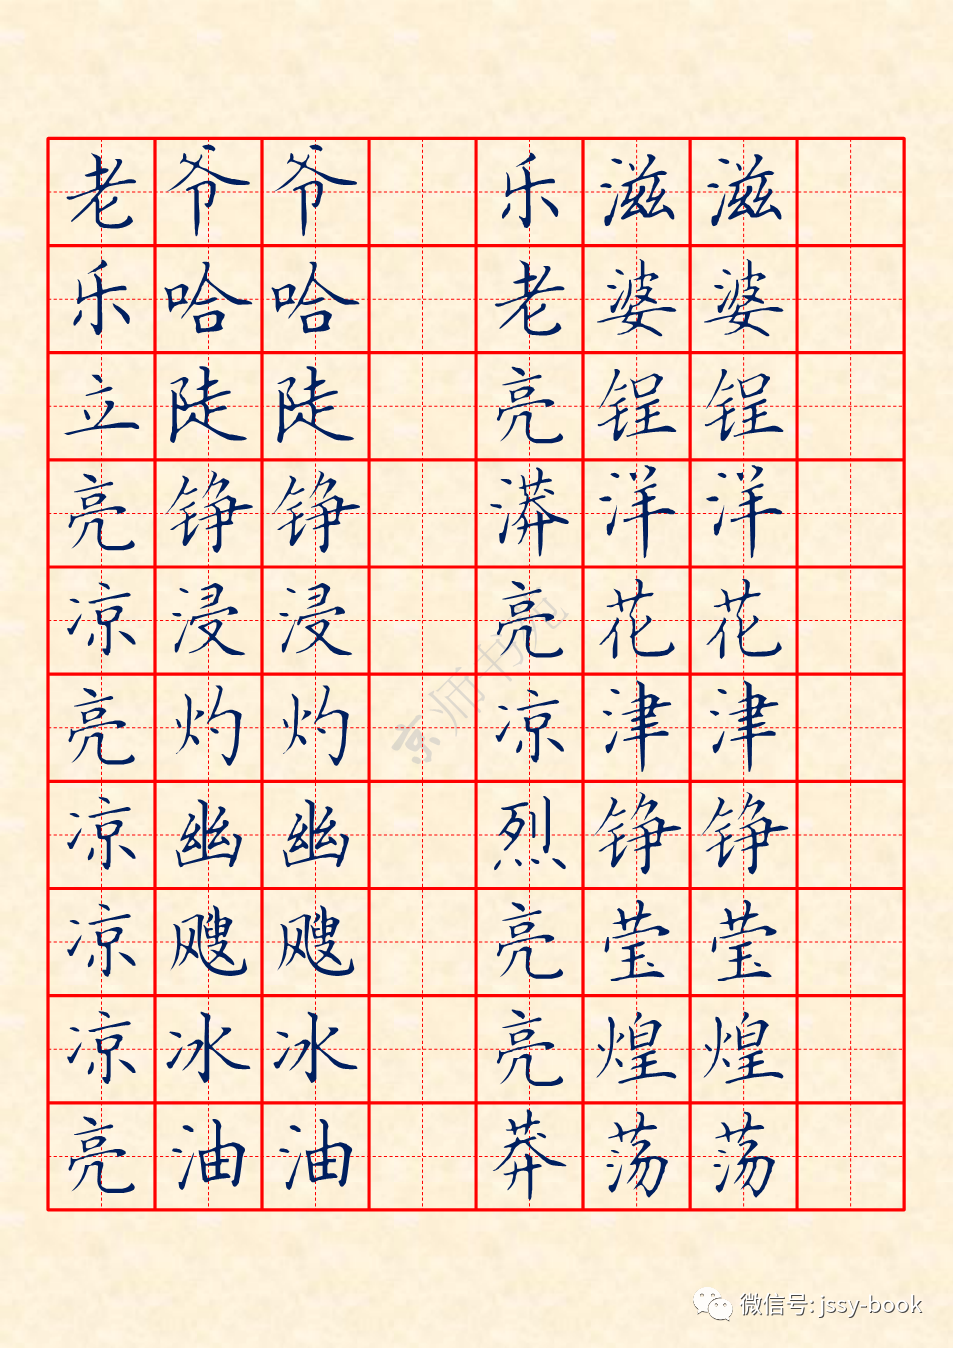 老爷爷 乐滋滋
乐哈哈 老婆婆
立陡陡 亮锃锃
亮铮铮 漭洋洋
凉浸浸 亮花花
亮灼灼 凉津津
凉幽幽 烈铮铮
凉飕飕 亮莹莹
凉冰冰 亮煌煌
亮油油 莽荡荡
京师书苑
微信号: jssy-book